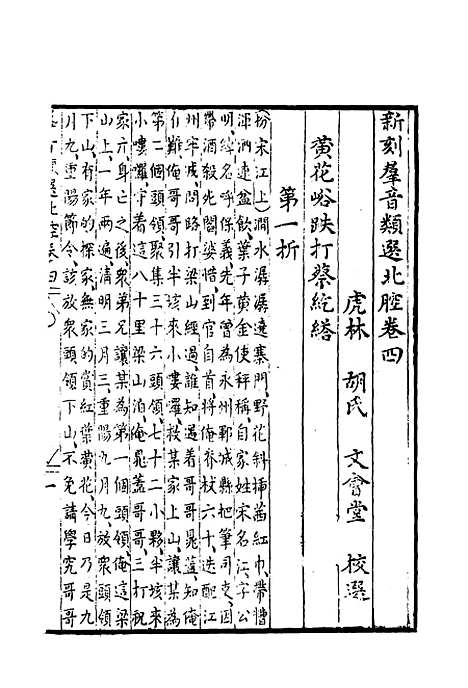 新刻羣音類選北腔卷四
虎林 胡氏 文會堂 校選
黄花峪跌打蔡䊵繙
第一折
扮宋江上澗水潺潺遶寨門野花斜插茜紅巾帶糟
渾洒連盆飲葉子黄金使秤稱自家姓宋名江字公
明綽名呼保義先年曾為永州鄆城縣把筆司吏因
帶酒殺死閻婆惜到官自首將俺脊杖六十迭配江
州牢城因問路打梁山泊過遇着晁蓋知俺
有難俺哥哥引半垓來小嘍囉救某家上山讓某為
第二個頭領聚集三十六頭領七十二小夥半垓來
小嘍囉守着這八十里梁山泊俺晁蓋哥哥三打祝
家庄身亡之後衆弟兄讓某為第一個頭領俺這梁
山上一年兩遍清明三月三重陽九月九放衆頭領
下山有家的探家無家的賞紅葉黄花今日乃是九
月九重陽節令該放衆頭領下山不免請學究哥哥
一